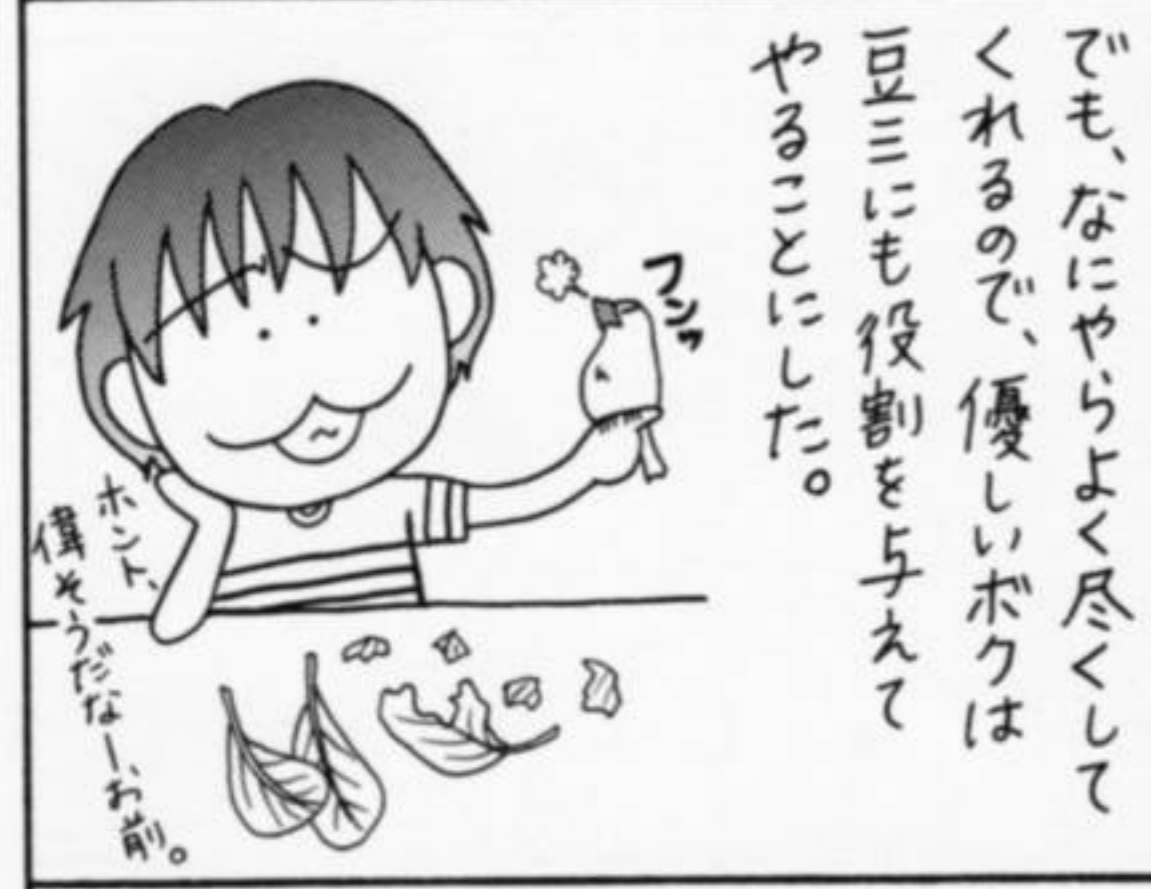 でも、なにやらよく尽くして
くれるので、優しいボクは
豆三にも役割を与えて
やることにした。
フンッ
ホント、
偉そうだなー、お前。